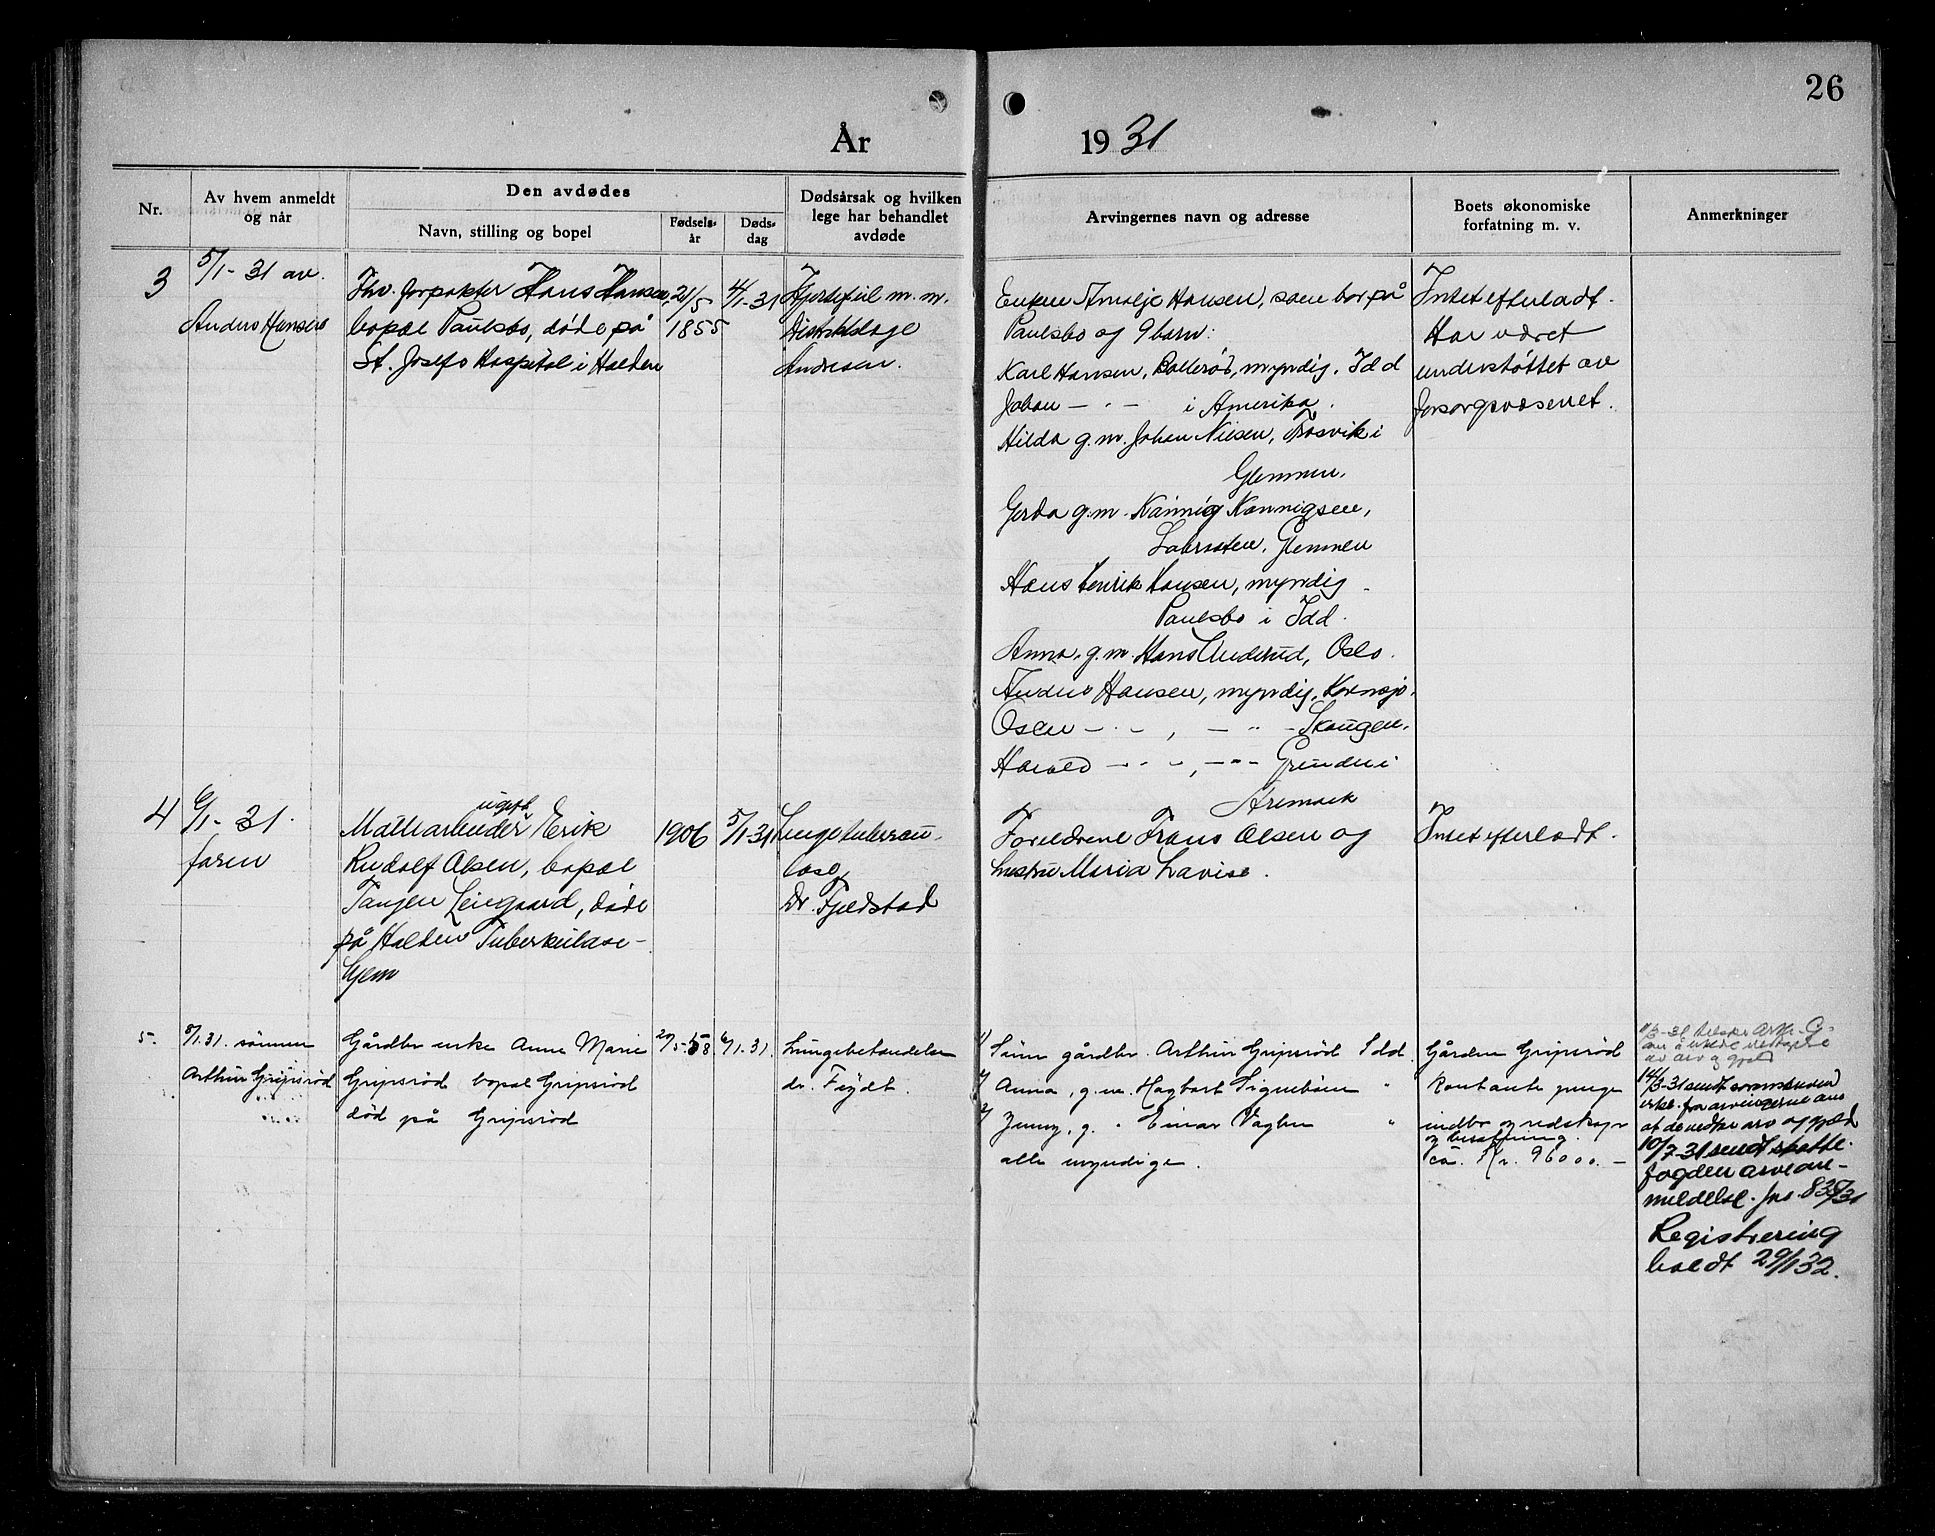 26
År 1931
Nr.
Av hvem anmeldt
og når
Den avdødes
Navn, stilling og bopel
Fødsels-
år
Døds-
dag
Dødsårsak og hvilken
lege har behandlet
avdøde
Arvingernes navn og adresse
Boets økonomiske
forfatning m. v.
Anmerkninger
3
5/1-31 av.
Anders Hansen
Fhv. forpakter Hans Hansen,
bopæl Paulsbo, døde på
St. Josefs Hospital i Halden
21/5
1855
4/1-31
Hjertefeil m.m.
Distriktslæge
Andresen.
Enken Amalje Hansen, som bor på
Paulsbo og 9 barn:
Karl Hansen, myndig, Idd
Johan — " — i Amerika.
Hilda g.m. Johan Nilsen, Trosvik i
Glemmen.
Gerda g.m. Kannig Kannigsen,
Glemmen
Hans Henrik Hansen, myndig
Paulsbo i Idd.
Anna, g.m. Hans Oslo.
Anders Hansen, myndig, Kornsjø.
Oscar — " — , — " — Skaugen.
Harald — " — , — " — i
Aremark
Intet efterladt.
Har været
understøttet av
forsorgsvæsenet.
4
6/1-31.
faren
ugift
Møllearbeider Erik
Rudolf Olsen, bopæl
Tangen Leiegaard, døde
på Halden Tuberkulose-
hjem
1906
5/1-31
Lungetuberku-
lose
Dr. Fjeldstad
Foreldrene Frans Olsen og
hustru Maria Lavise.
Intet efterladt.
5.
8/1.31. sønnen
Arthur Gripsrød
Gårdbr enke Anne Marie
Gripsrød bopæl Gripsrød
død på Gripsrød
20/5-58
6/1.31.
Lungebetendelse
dr. Feydt.
1/ Sønn gårdbr. Arthur Gripsrød Idd.
2/ Anna, g.m. Hagbart Signebøen "
3/ Jenny, g. " Einar Vagle "
alle myndige.
Gården Gripsrød
kontante penge
indbo og redskaper
og besætning.
ca. Kr. 96000.—
14/3-31 sendt
erkl. fra arvingerne om
at de vedtar arv og gjeld
10/7-31 sendt skatte-
fogden arvean-
meldelse. jnr. 835/31
Registrering
holdt 29/1 32.